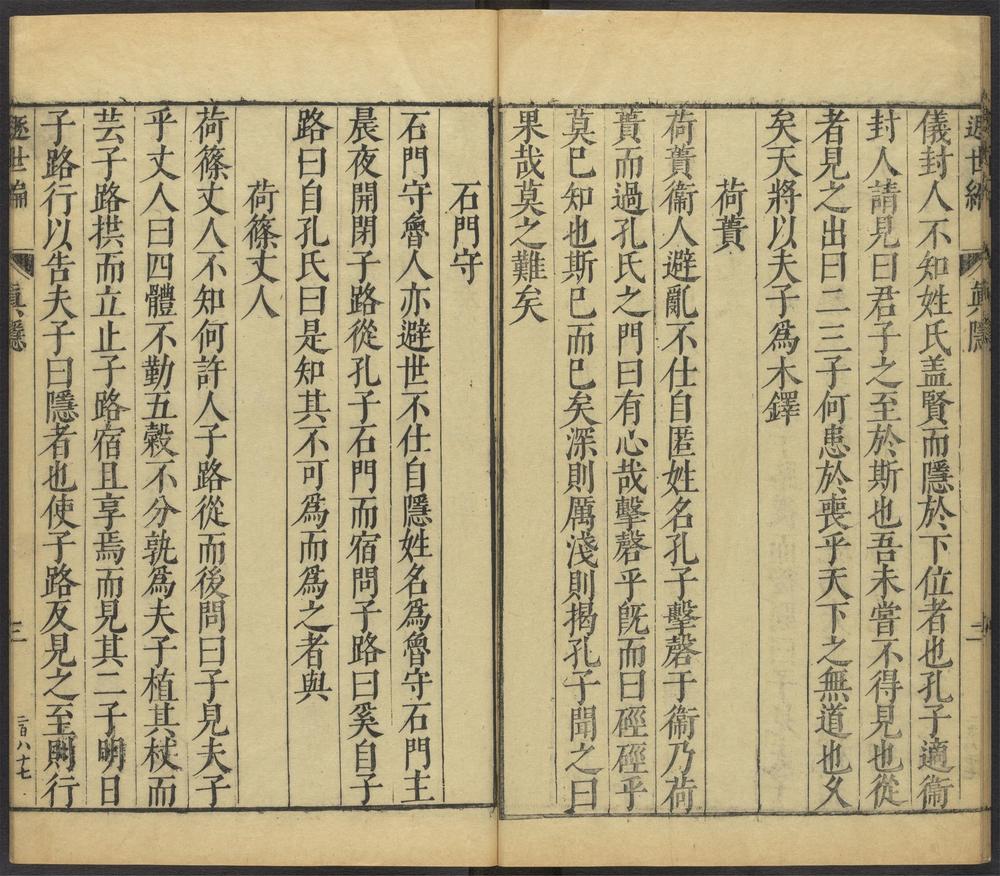 遯世編
眞隱
二
儀封人不知姓氏盖賢而隱於下位者也孔子適衞
封人請見曰君子之至於斯也吾未嘗不得見也從
者見之出曰二三子何患於喪乎天下之無道也久
矣天將以夫子爲木鐸
荷蕢
荷蕢衞人避亂不仕自匿姓名孔子擊磬于衞乃荷
蕢而過孔氏之門曰有心哉擊磬乎旣而曰硜硜乎
莫已知也斯已而已矣深則厲淺則揭孔子聞之曰
果哉莫之難矣
石門守
石門守魯人亦避世不仕自隱姓名爲魯守石門主
晨夜開閉子路從孔子石門而宿問子路曰奚自子
路曰自孔氏曰是知其不可爲而爲之者與
荷篠丈人
荷篠丈人不知何許人子路從而後問曰子見夫子
乎丈人曰四體不勤五穀不分孰爲夫子植其杖而
芸子路拱而立止子路宿且享焉而見其二子明日
子路行以告夫子曰隱者也使子路反見之至則行
遯世編
眞隱
三
二百八十七